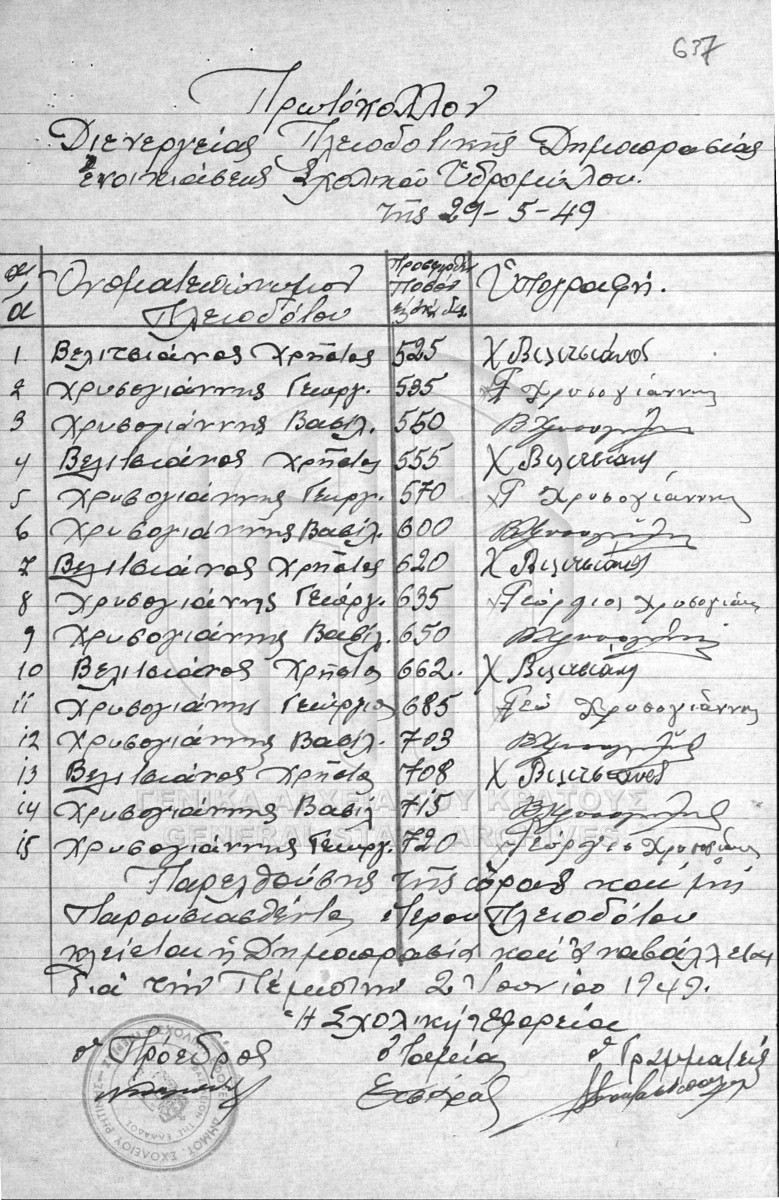 637
Πρωτόκολλον
Διενεργείας Πλειοδοτικής Δημοπρασίας
Ενοικιάσεως Σχολικού Υδρομύλου.
της 29-5-49
α/α Ονοματεπώνυμον Πλειοδότου Προσφερθέν Ποσόν Υπογραφή.
1 Βελιτσιάνος Χρήστος 525 Χ Βελιτσιάνος
2 Χρυσογιάννης Γεωργ. 535 Γ Χρυσογιάννης
3 Χρυσογιάννης Βασίλ. 550
4 Βελιτσιάνος Χρήστος 555 Χ Βελιτσιάνος
5 Χρυσογιάννης Γεωργ. 570 Γ Χρυσογιάννης
6 Χρυσογιάννης Βασίλ. 600
7 Βελιτσιάνος Χρήστος 620 Χ Βελιτσιάνος
8 Χρυσογιάννης Γεώργ. 635 Γεώργιος Χρυσογιάννης
9 Χρυσογιάννης Βασίλ. 650
10 Βελιτσιάνος Χρήστος 662. Χ Βελιτσιάνος
11 Χρυσογιάνης Γεώργιος 685 Γεώ Χρυσογιάννης
12 Χρυσογιάννης Βασίλ. 703
13 Βελιτσιάνος Χρήστος 708 Χ Βελιτσιάνος
14 Χρυσογιάννης Βασίλ 715
15 Χρυσογιάννης Γεωργ. 720 Γεώργιος Χρυσογιάννης
ΓΕΝΙΚΑ ΑΡΧΕΙΑ ΤΟΥ ΚΡΑΤΟΥΣ
GENERAL STATE ARCHIVES
Παρελθούσης της ώρας και μη
Παρουσιασθέντος ετέρου Πλειοδότου
κλείεται η Δημοπρασία και αναβάλλεται
διά την Πέμπτην 2 Ιουνίου 1949.
Η Σχολική Εφορεία
ο Πρόεδρος ο Ταμίας ο Γραμματεύς